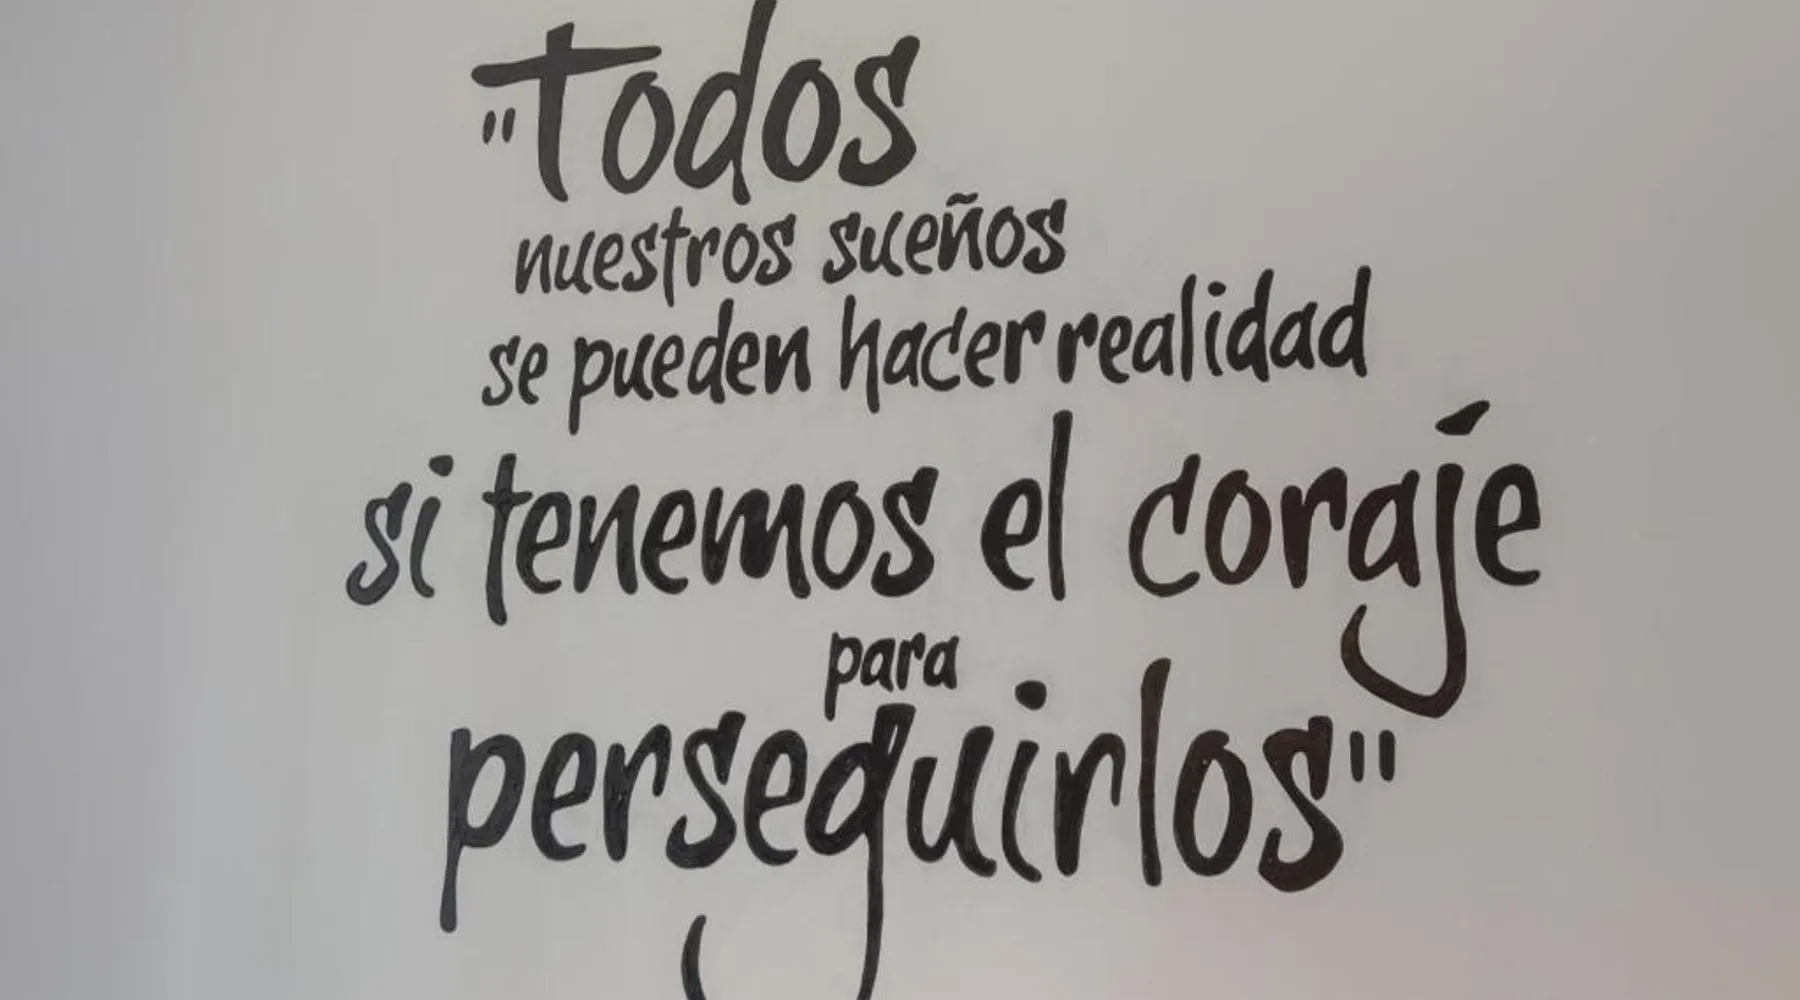 "Todos
nuestros sueños
se pueden hacer realidad
si tenemos el coraje
para
perseguirlos"